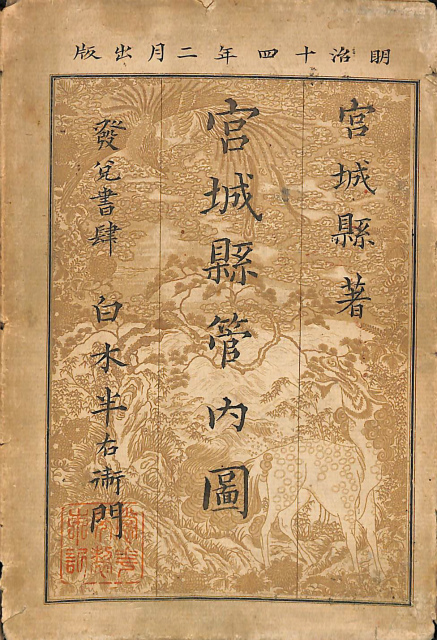 明治十四年二月出版
宮城縣著
宮城縣管内圖
發兌書肆 白木半右衛門